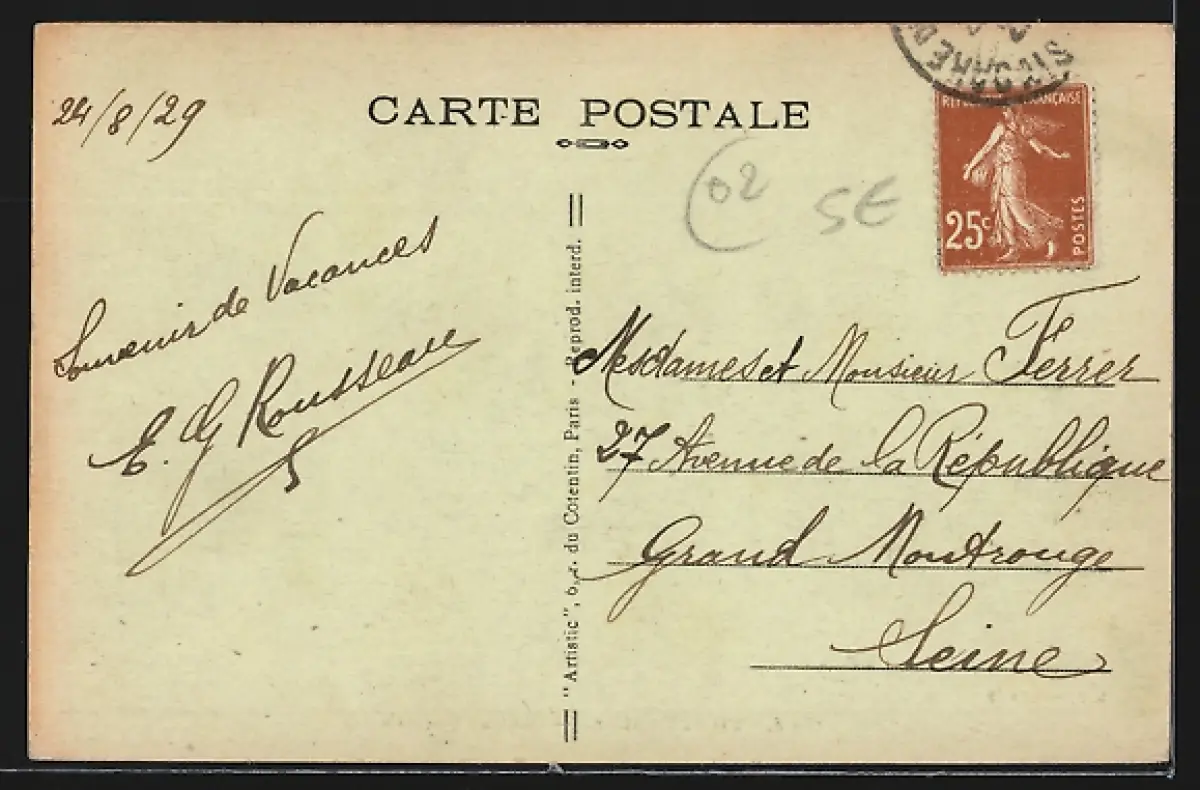 24/8/29
CARTE POSTALE
02
SE
RÉPUBLIQUE FRANÇAISE
25c
POSTES
Souvenir de Vacances
E. G Rousseau
"Artistic", 6, r. du Cotentin, Paris - Reprod. interd.
Mesdames et Monsieur Ferrer
27 Avenue de la République
Grand Montrouge
Seine